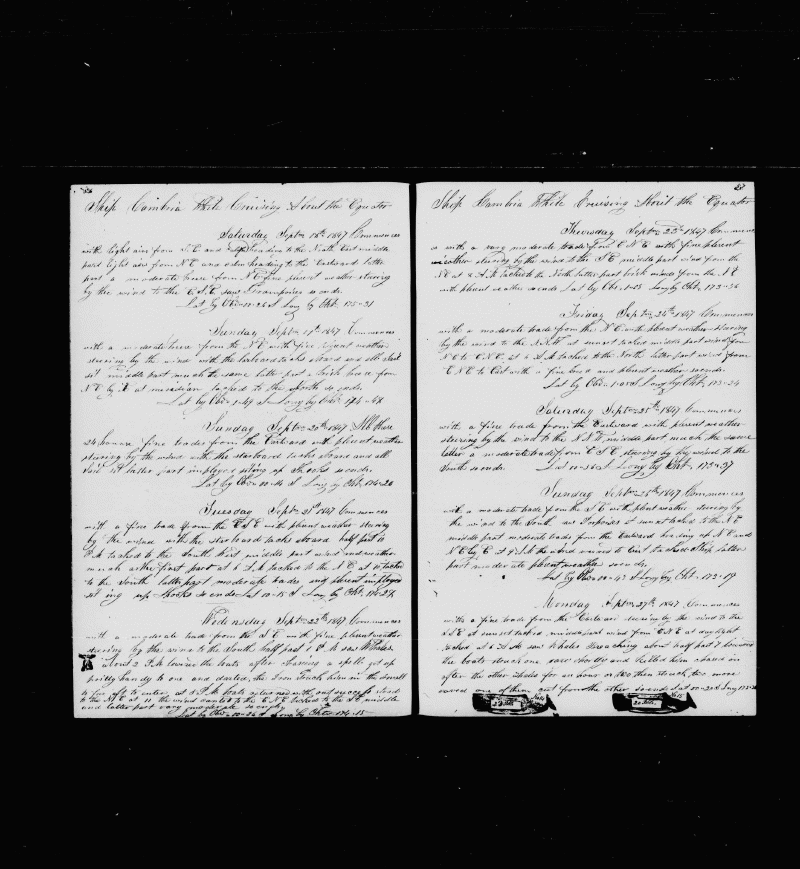 Ship Cambria While Cruising About the Equator
Saturday Sept 18th 1847 Commences
with light airs from S.E and heading to the North East middle
part light airs from N E and heading to the Eastward latter
part a moderate breese from N E fine plesent weather stearing
by the wind to the E.S.E saw Grampuses so ends
Lat by Obs 00-26 S Long by Chr. 175-21
Sunday Sept 19th 1847 Commences
with a moderate breese from the N E with fine plesent weather
stearing by the wind with the larboard tacks aboard and all sail
set middle part much the same latter part a brisk breese from
N E by E at meridian tacked to the North so ends
Lat by Obs 1-47 S Long by Chr 174-
Sunday Sept 20th 1847
24 hours fine trades from the Eastward with plesent weather
stearing by the wind with the starboard tacks aboard and all
sail set latter part employed seting up Shooks so ends
Lat by Obs 00-14 S Long by Chr. 174-20
Tuesday Sept 21st 1847 Commences
with a fine trade from the E S E with plesent weather stearing
by the wind with the Starboard tacks aboard half past
P.M tacked to the South West middle part wind and weather
much as the first part at 6 A.M tacked to the N E at 10 tacked
to the South latter part moderate trades and plesent imployed
seting up shooks so ends Lat 00-15 S Long by Chr. 174-24
Wednesday Sept 22d 1847 Commences
with a moderate trade from the S E with fine plesent weather
stearing by the wind to the South half past 1 P.M saw Whales
about 2 P.M lowered the boats after chaseing a spell got up
prity handy to one and darted, the Iron Struck him in the Small
to fire aft to enter at 5 P.M boats returned without success stood
to the N E at 11 the wind to the E N E tacked to the S E middle
and latter part very moderate so ends
Lat by Obs 00-26 S Long by Chr 174-15
Ship Cambria While Cruising About the Equator
Thursday Sept 23d 1847 Commences
with a very moderate trade from E N E with fine plesent
weather stearing by the wind to the S E middle part wind from the
N E at 8 A.M tacked to the North latter part brisk winds from the N E
with plesent weather so ends Lat by Obs 1-15 Long by Chr. 173-36
Friday Sept 24th 1847 Commences
with a moderate trade from the N E with plesent weather stearing
by the wind to the N.N.W at sunset tacked middle part wind from
N E to E.N.E at 4 A.M tacked to the North latter part wind from
E N E to East with a fine breese and plesent weather so ends
Lat by Obs 1-01 S Long by Chr. 173-34
Saturday Sept 25th 1847 Commences
with a fine trade from the Eastward with plesent weather
stearing by the wind to the N.N.E middle part much the same
latter a moderate trade from E S E stearing by the wind to the
South so ends Lat 00-56 S Long by Chr. 173-37
Sunday Sept 26th 1847 Commences
with a moderate trade from the S E with plesent weather stearing by
the wind to the South saw Porpoises at sunset tacked to the N E
middle part moderate trades from the Eastward heading up N E and
N E by E at 7 A.M the wind to East tacked Ship latter
part moderate plesent weather so ends
Lat by Obs 00-47 S Long by Chr. 173-19
Monday Sept 27th 1847 Commences
with a fine trade from the Eastward stearing by the wind to the
S S E at sunset tacked, middle part wind from E N E at daylight
tacked at 6 A.M saw Whales Breaching about half past 7 lowered
the boats struck one saw shortly and killed him chased on
after the other Whales for an hour or two then struck two more
saved one of them part from the other so ends Lat 00-20 S Long 173-